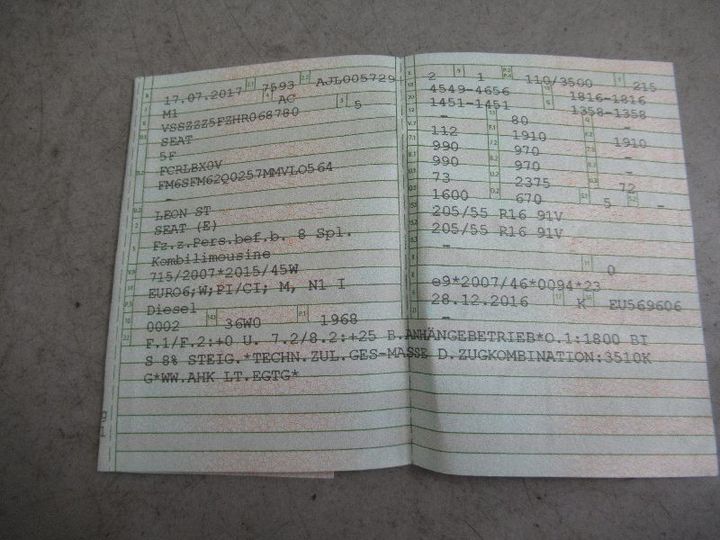 17.07.2017 7593 AJL005729
M1 AC 5
VSSZZZ5FZHR068780
SEAT
5F
FCRLBX0V
FM6SFM62Q0257MMVLO564
-
LEON ST
SEAT (E)
Fz.z.Pers.bef.b. 8 Spl.
Kombilimousine
715/2007*2015/45W
EURO6;W;PI/CI; M, N1 I
Diesel
0002 36W0 1968
2 1 110/3500 215
4549-4656 1816-1816
1451-1451 1358-1358
- 80 -
112 1910 1910
990 970 -
990 970 -
73 2375 72
1600 670 5 -
205/55 R16 91V
205/55 R16 91V
-
0
e9*2007/46*0094*23
28.12.2016 K EU569606
-
F.1/F.2:+0 U. 7.2/8.2:+25 B.ANHÄNGEBETRIEB*O.1:1800 BI
S 8% STEIG.*TECHN.ZUL.GES-MASSE D.ZUGKOMBINATION:3510K
G*WW.AHK LT.EGTG*